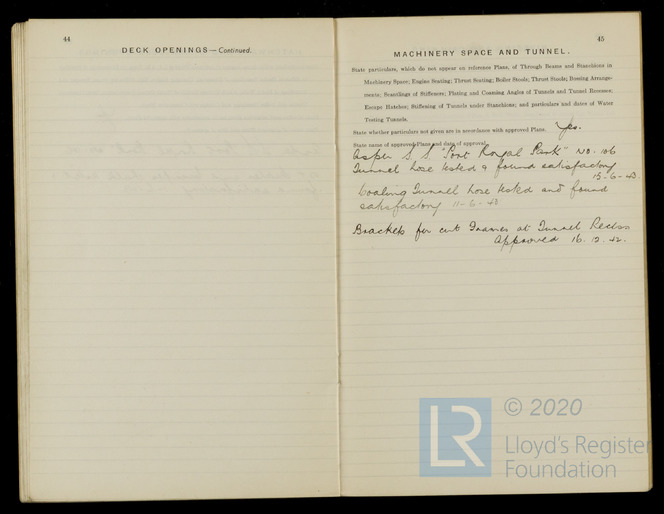 44
DECK OPENINGS—Continued.
45
MACHINERY SPACE AND TUNNEL.
State particulars, which do not appear on reference Plans, of Through Beams and Stanchions in
Machinery Space; Engine Seating; Thrust Seating; Boiler Stools; Thrust Stools; Bossing Arrange-
ments; Scantlings of Stiffeners; Plating and Coaming Angles of Tunnels and Tunnel Recesses;
Escape Hatches; Stiffening of Tunnels under Stanchions; and particulars and dates of Water
Testing Tunnels.
State whether particulars not given are in accordance with approved Plans. Yes.
State name of approved Plans and date of approval.
As per S.S. "Port Royal Park" No. 106
Tunnel hose tested & found satisfactory
15-6-43.
Coaling Tunnel hose tested and found
satisfactory 11-6-43
Brackets for cut Frames at Tunnel Recess
Approved 16.12.42.
LR
© 2020
Lloyd's Register
Foundation